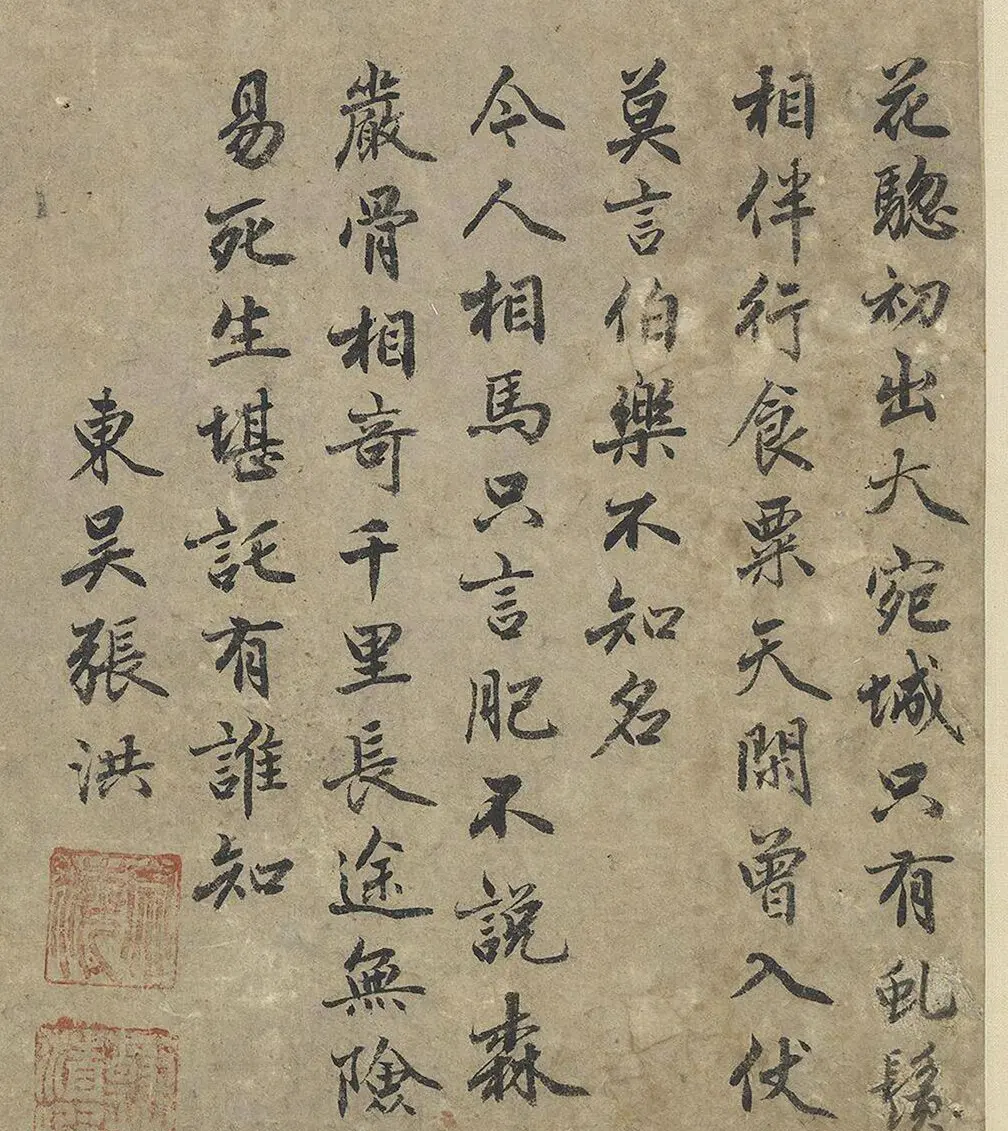 花驄初出大宛城只有虬鬚
相伴行食粟天閑曾入仗
莫言伯樂不知名
今人相馬只言肥不說森
嚴骨相奇千里長途無險
易死生堪託有誰知
東吳張洪